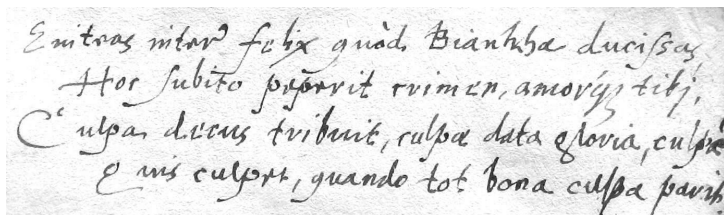 Eniteas inter felix quòd Biankhæ ducissas,
Hoc subito peperit crimen, amorq́ꝫ tibj.
Culpa decus tribuit, culpæ data gloria, culpā
Quis culpet, quando tot bona culpa parit